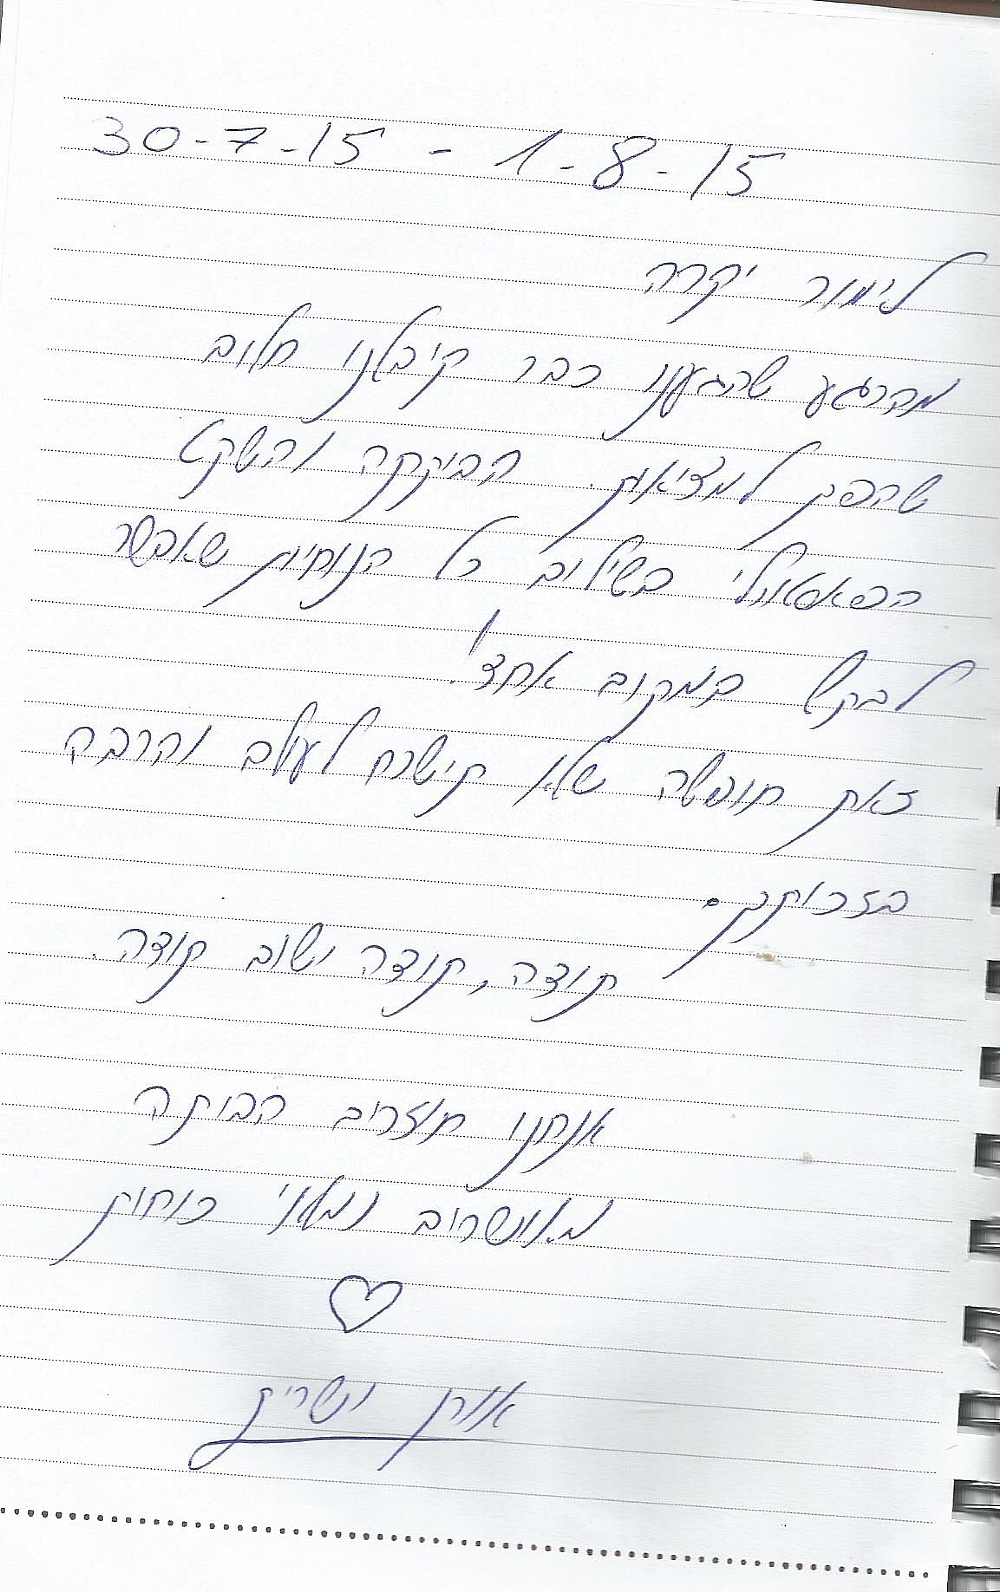 30-7-15 - 1-8-15
לימור יקרה
מהרגע שהגענו כבר קיבלנו חלום
שהפך למציאות. הבקתה והשקט
הפאסטורלי בשילוב כל הנוחות שאפשר
לבקש במקום אחד!
זאת חופשה שלא תישכח לעולם והרבה
בזכותכם.
תודה, תודה ושוב תודה.
אנחנו חוזרים הביתה
מאושרים ומלאי כוחות
אורן ושרית